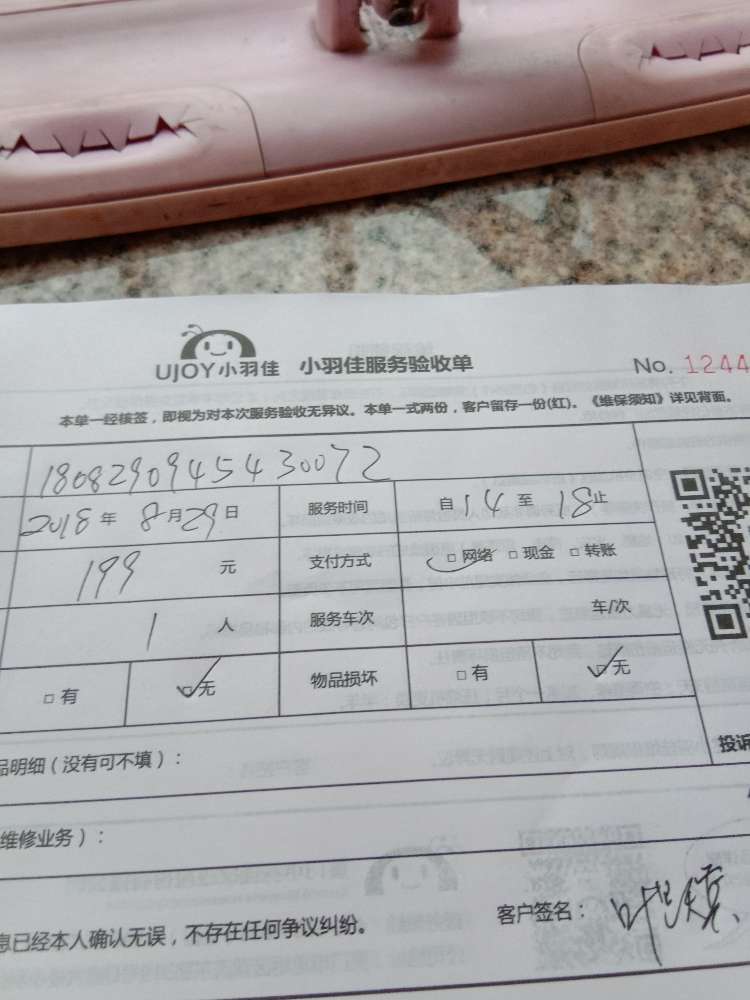 UJOY小羽佳 小羽佳服务验收单 No. 1244
本单一经核签，即视为对本次服务验收无异议。本单一式两份，客户留存一份(红)。《维保须知》详见背面。
18082909454430072
2018年8月29日 服务时间 自14至18止
199元 支付方式 □网络 □现金 □转账
1人 服务车次 车/次
□有 □无 物品损坏 □有 □无
品明细（没有可不填）： 投诉
维修业务）：
息已经本人确认无误，不存在任何争议纠纷。 客户签名：